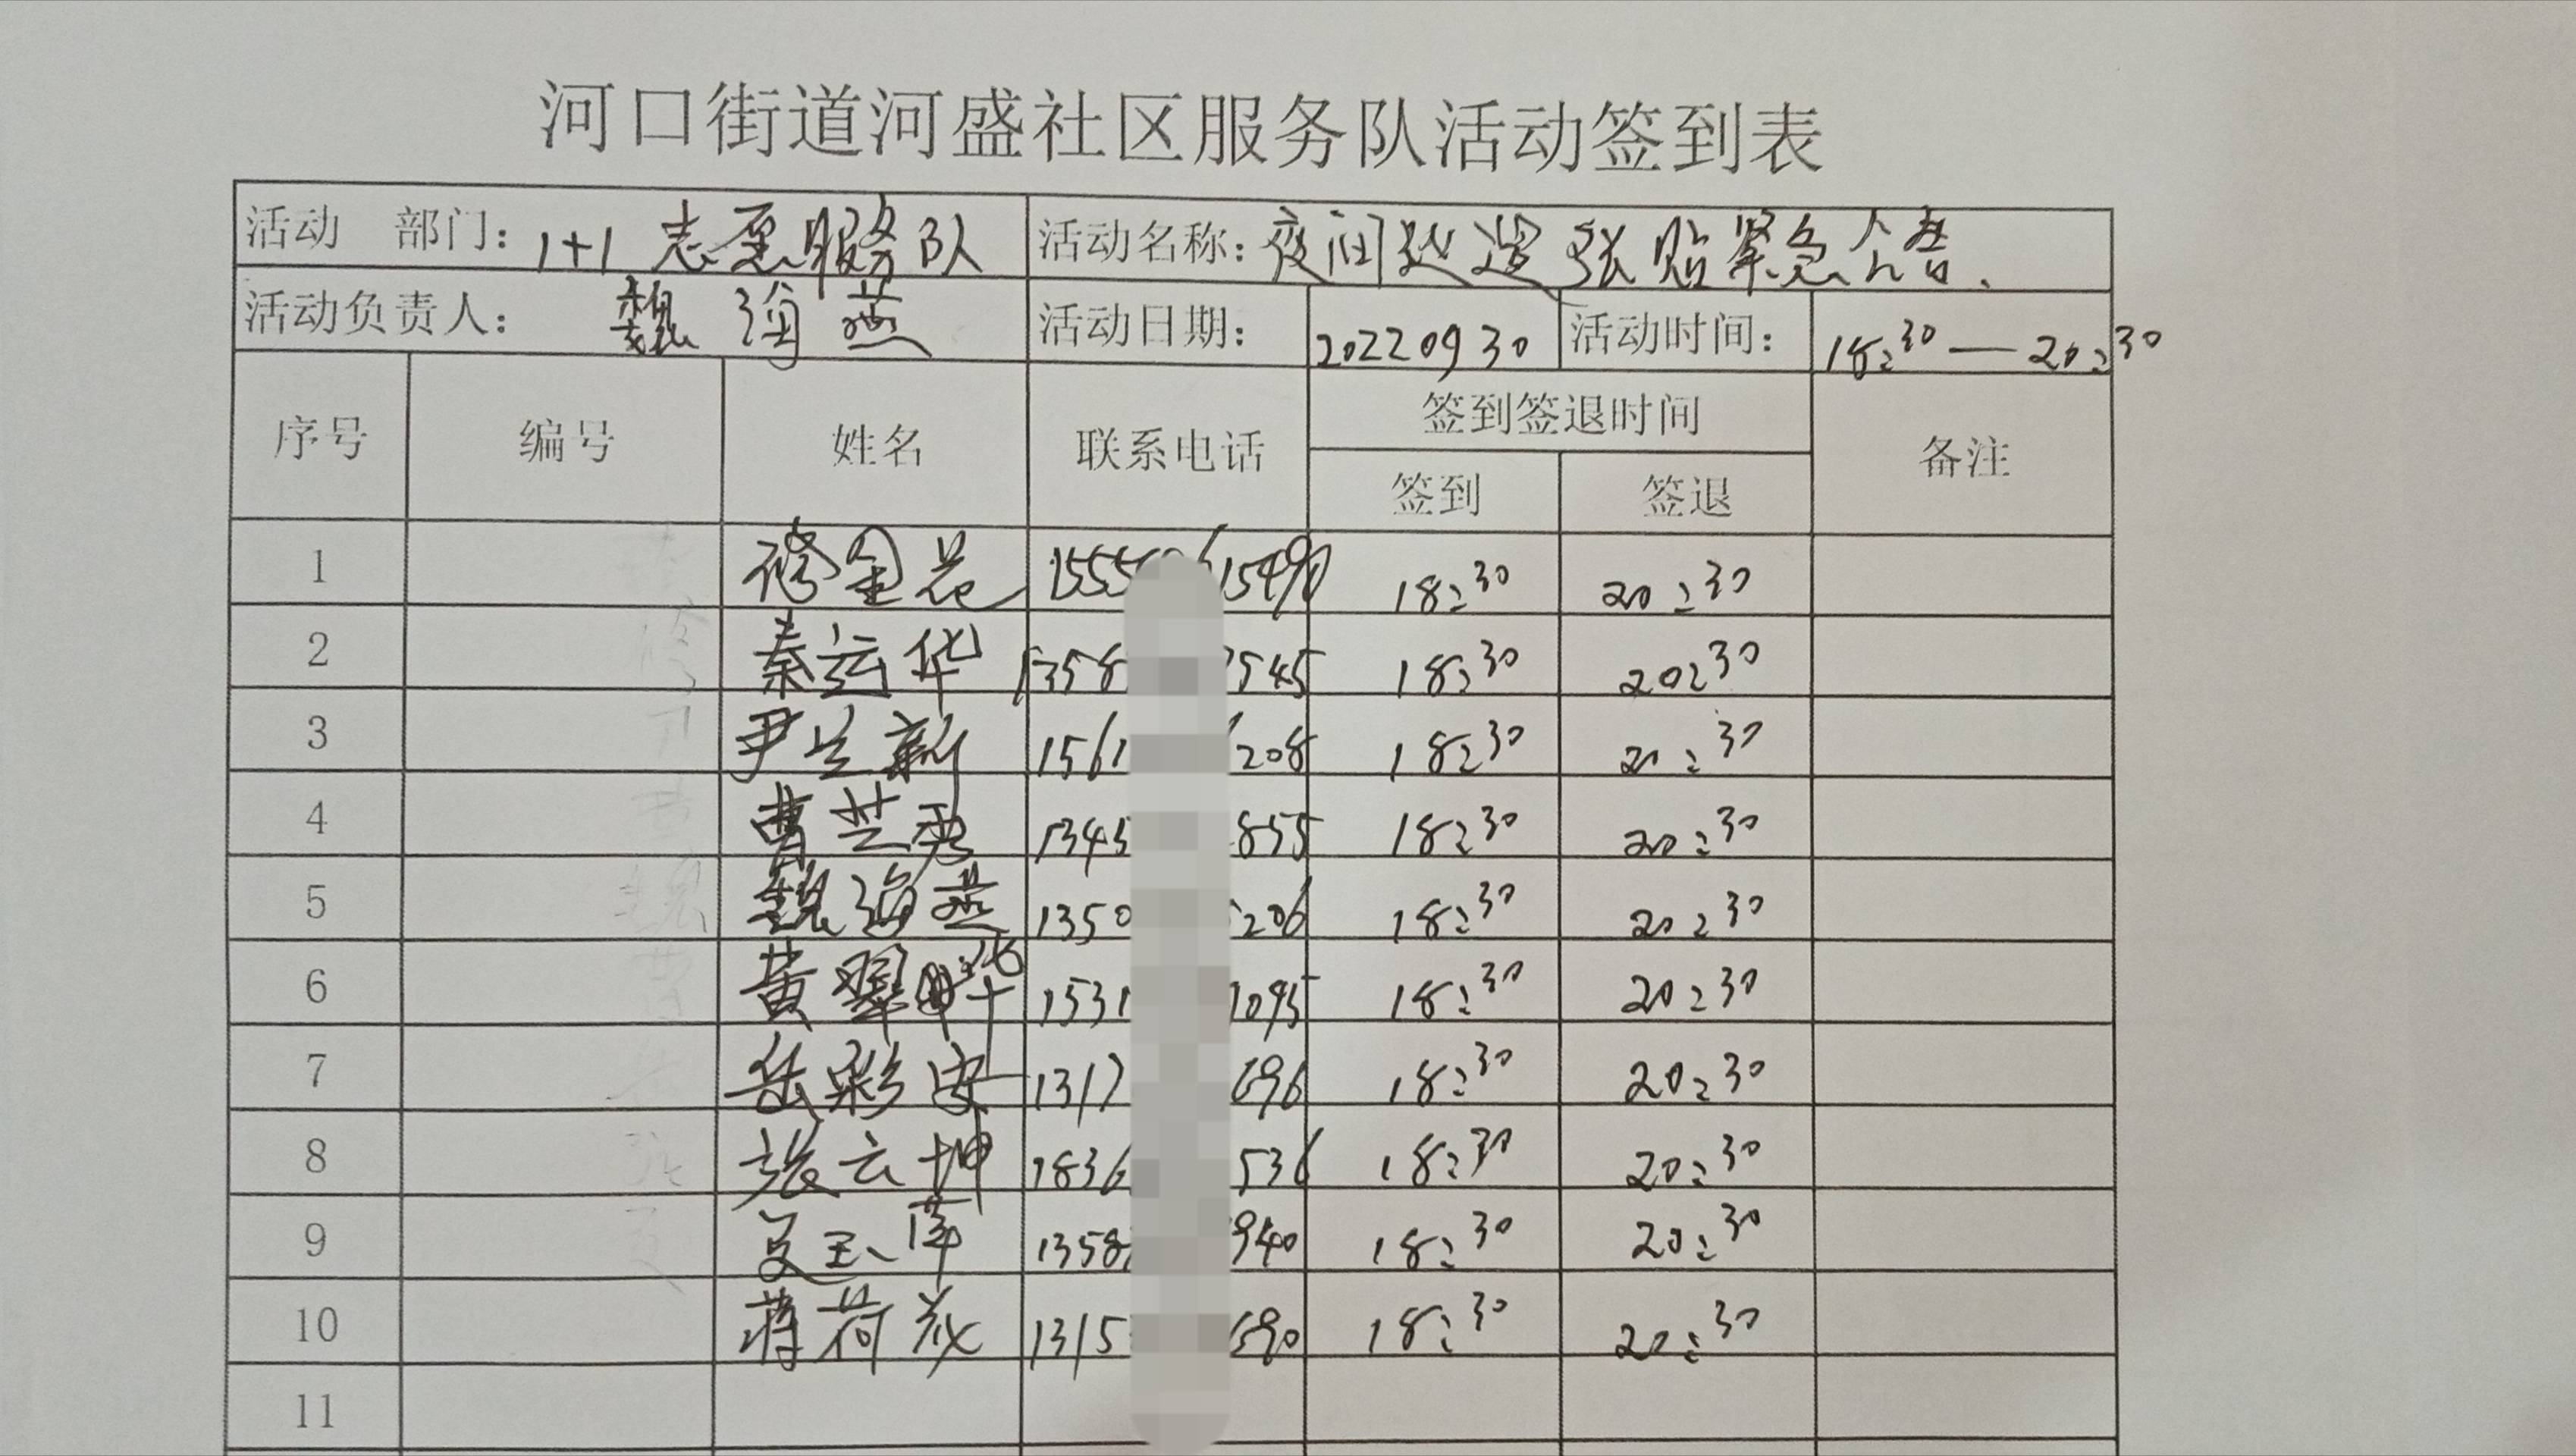 河口街道河盛社区服务队活动签到表
活动 部门: 1+1 志愿服务队 活动名称: 夜间巡逻张贴紧急公告.
活动负责人: 魏海燕 活动日期: 20220930 活动时间: 18:30—20:30
序号 编号 姓名 联系电话 签到签退时间 备注
签到 签退
1 修金花 1555 15490 18:30 20:30
2 秦运华 1358 7545 18:30 20:30
3 尹兰新 1561 208 18:30 20:30
4 曹芝秀 1345 855 18:30 20:30
5 魏海燕 1350 206 18:30 20:30
6 黄翠 1531 1095 18:30 20:30
7 岳彩安 1317 696 18:30 20:30
8 张云坤 1836 536 18:30 20:30
9 玉萍 1358 940 18:30 20:30
10 蒋荷 1315 690 18:30 20:30
11